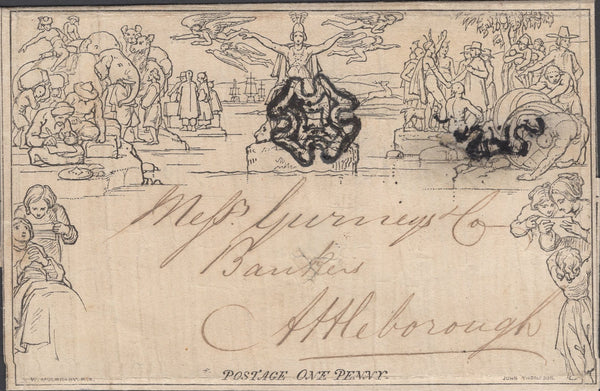 Messrs Gurneys & Co
Bankers
Attleborough
POSTAGE ONE PENNY.
W. MULREADY, R.A.
JOHN THOMPSON